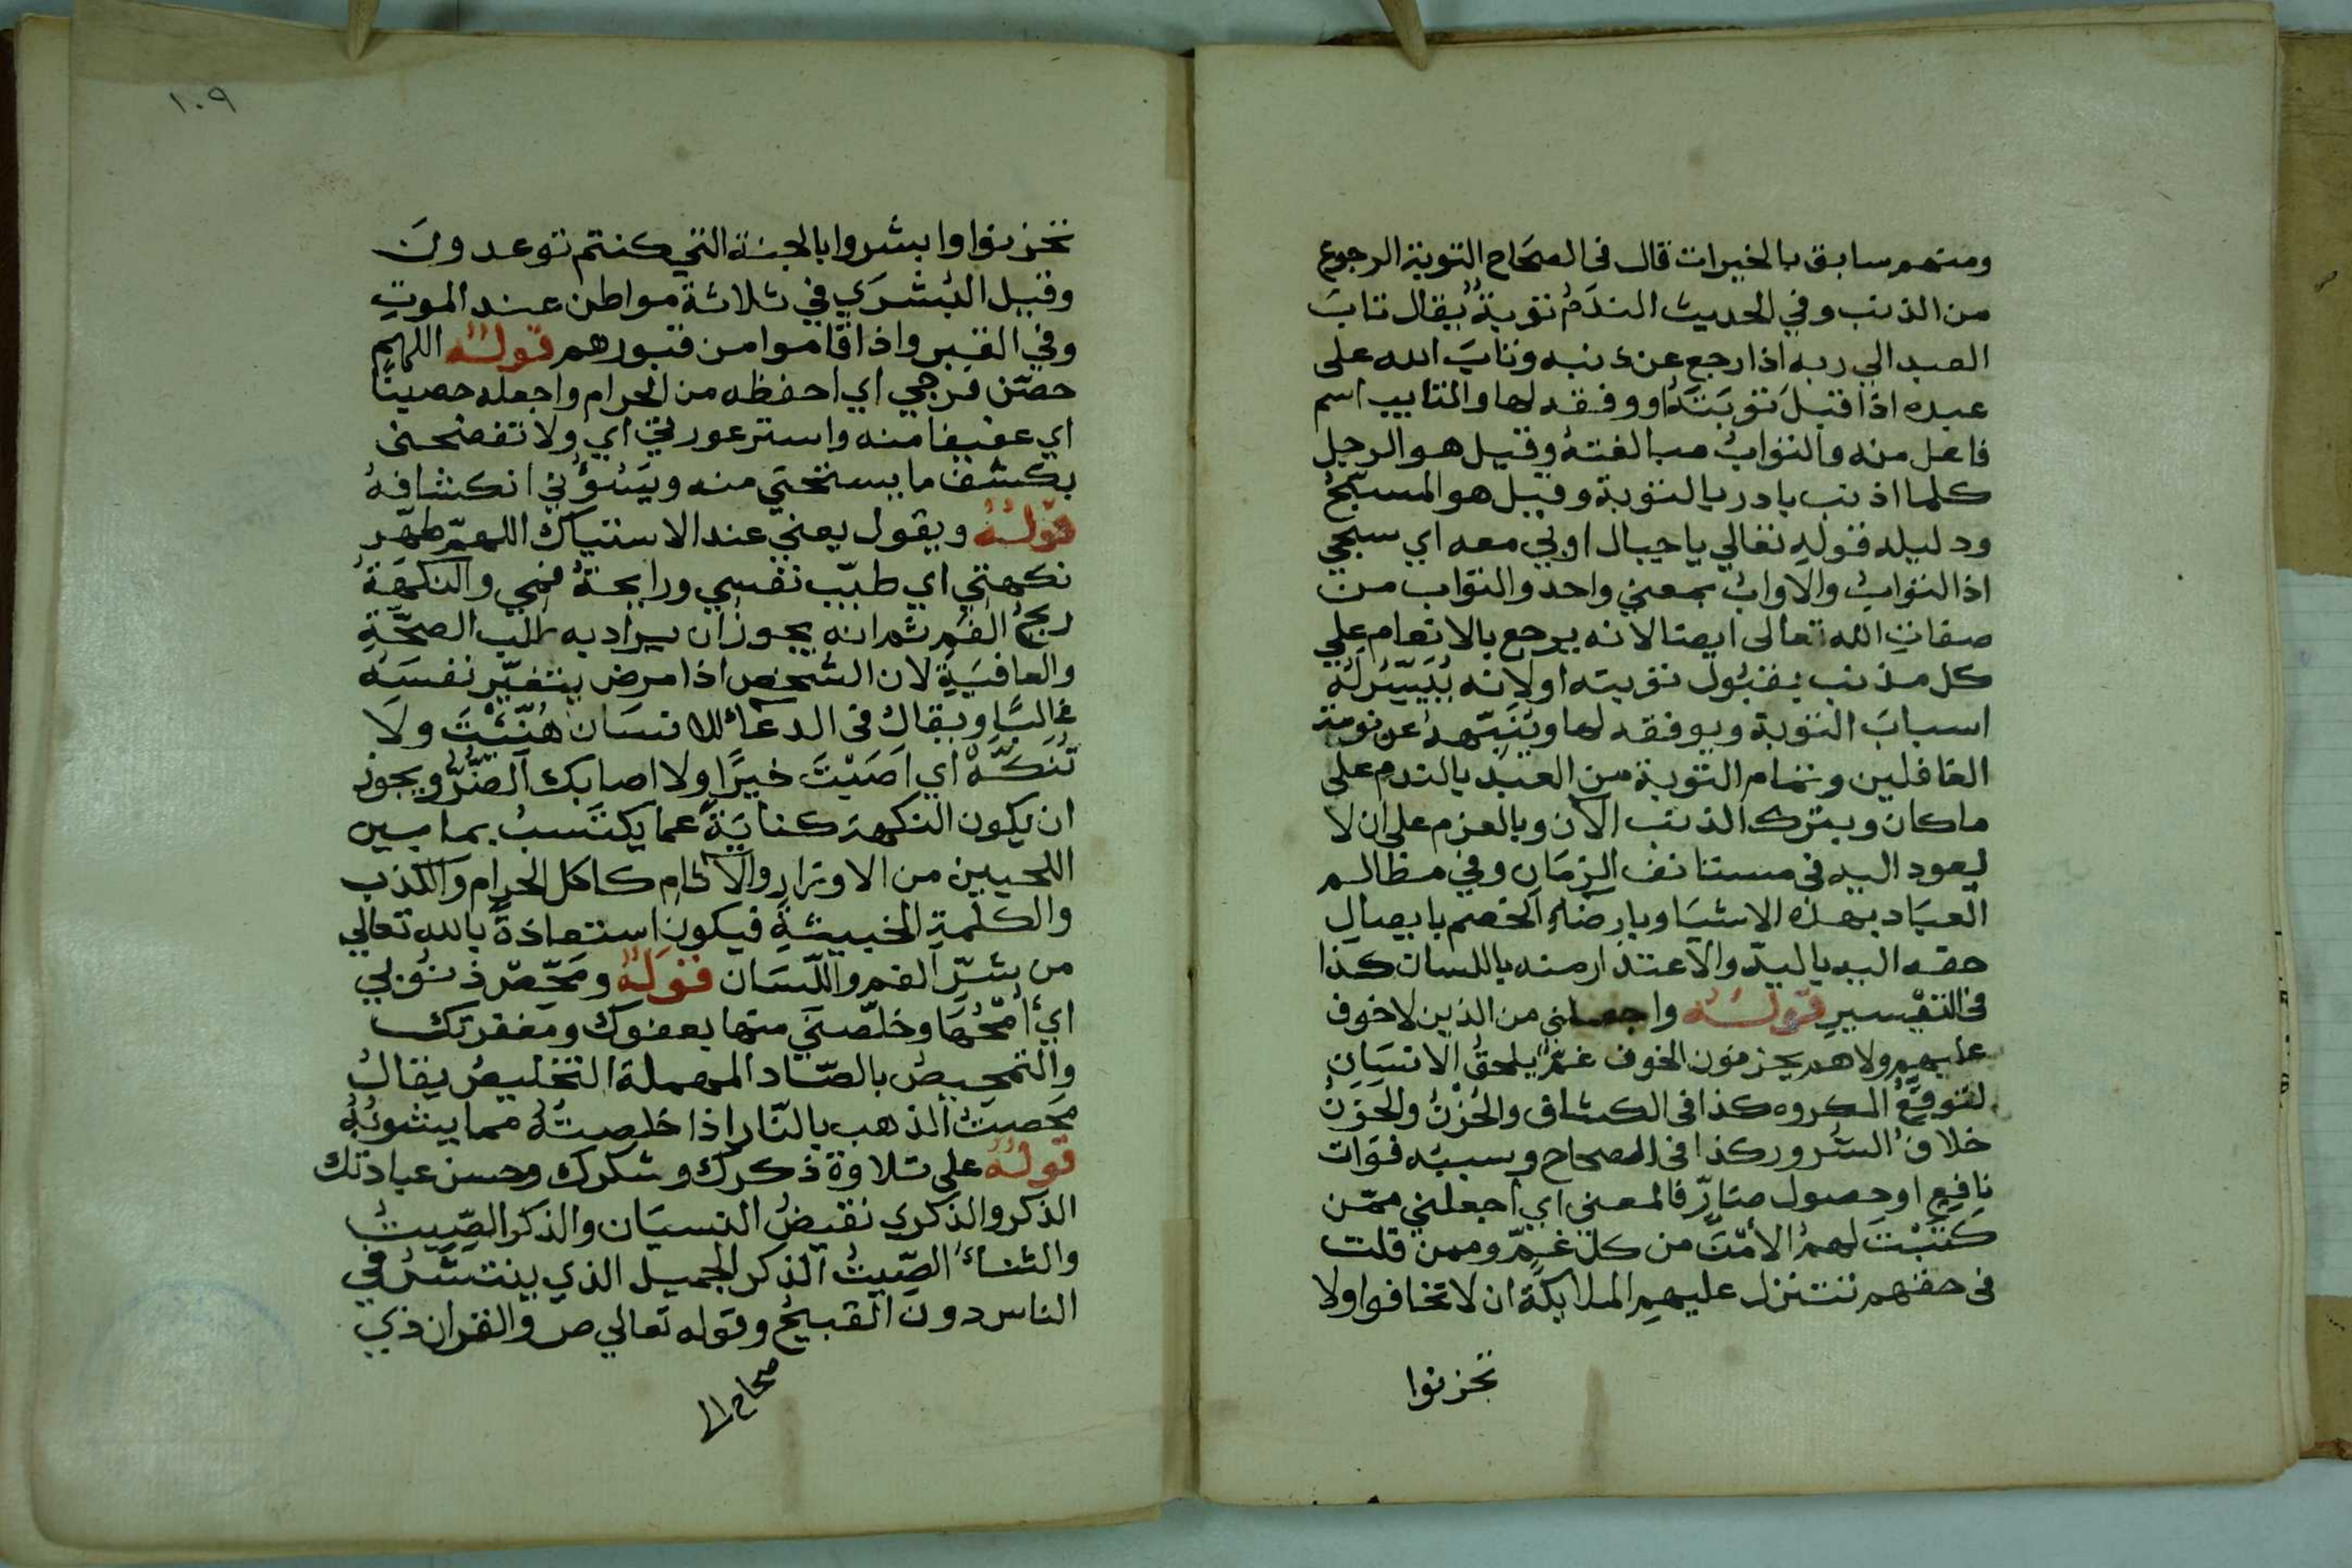 ومنهم سابق بالخيرات قال في الصحاح التوبة الرجوع
من الذنب وفي الحديث الندم توبة يقال تاب
العبد الي ربه اذا رجع عن ذنبه وتاب الله على
عبده اذا قبل توبته او وفقه لها والتايب اسم
فاعل منه والتواب مبالغته وقيل هو الرجل
كلما اذنب بادر بالتوبة وقيل هو المسبح
ودليله قوله تعالي يا جبال اوبي معه اي سبحي
اذا التواب والاواب بمعني واحد والتواب من
صفات الله تعالى ايضا لانه يرجع بالانعام علي
كل مذنب بقبول توبته او لانه ييسر له
اسباب التوبة ويوفقه لها وينبهه عن نومة
الغافلين وتمام التوبة من العبد بالندم على
ما كان وبترك الذنب الآن وبالعزم على ان لا
يعود اليه في مستانف الزمان وفي مظالم
العباد بهذه الاشيا وبارضاء الخصم بايصال
حقه اليه باليد والاعتذار منه باللسان كذا
في التفسير قوله واجعلني من الذين لا خوف
عليهم ولا هم يحزنون الخوف غم يلحق الانسان
لتوقع المكروه كذا في الكشاف والحزن والحزن
خلاف السرور كذا في الصحاح وسببه فوات
نافع او حصول ضار فالمعنى اي اجعلني ممن
كتبت لهم الأمن من كل غم وممن قلت
في حقهم تتنزل عليهم الملايكة ان لا تخافوا ولا
تحزنوا
١٠٩
تحزنوا وابشروا بالجنة التي كنتم توعدون
وقيل البشري في ثلاثة مواطن عند الموت
وفي القبر واذا قاموا من قبورهم قوله اللهم
حصن فرجي اي احفظه من الحرام واجعله حصينا
اي عفيفا منه واستر عورتي اي ولا تفضحني
بكشف ما يستحي منه ويسؤني انكشافه
قوله ويقول يعني عند الاستياك اللهم طهر
نكهتي اي طيب نفسي ورايحة فمي والنكهة
ريح الفم ثم انه يجوز ان يراد به طلب الصحة
والعافية لان الشخص اذا مرض يتغير نفسه
غالبا ويقال في الدعاء للانسان هنئت ولا
تنكه اي اصبت خيرا ولا اصابك الضر ويجوز
ان يكون النكهة كناية عما يكتسب بما بين
اللحيين من الاوزار والآثام كاكل الحرام والكذب
والكلمة الخبيثة فيكون استعاذة بالله تعالي
من شر الفم واللسان قوله ومحص ذنوبي
اي امحها وخلصني منها بعفوك ومغفرتك
والتمحيص بالصاد المهملة التخليص يقال
محصت الذهب بالنار اذا خلصته مما يشوبه
قوله على تلاوة ذكرك وشكرك وحسن عبادتك
الذكر والذكري نقيض النسيان والذكر الصيت
والثناء الصيت الذكر الجميل الذي ينتشر في
الناس دون القبيح وقوله تعالي ص والقران ذي